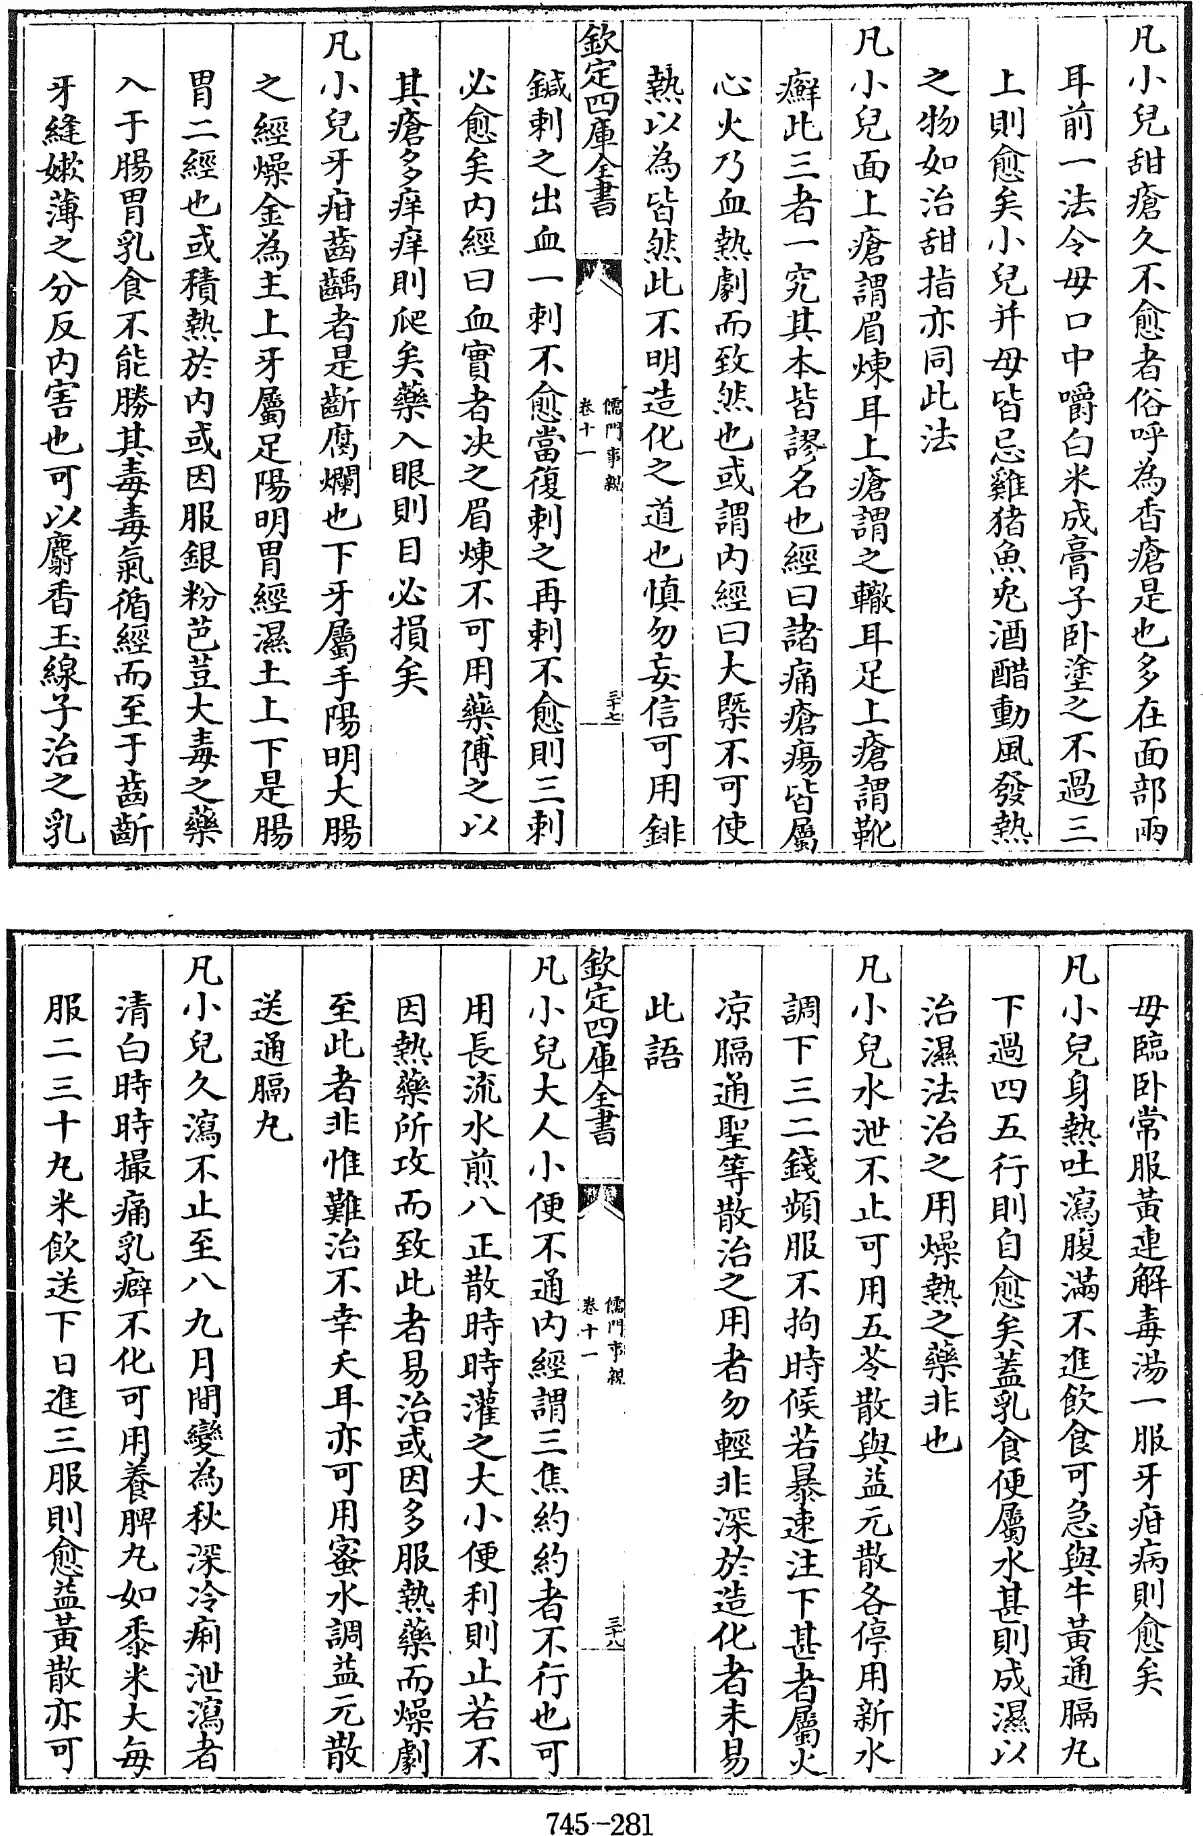 凡小兒甜瘡久不愈者俗呼為香瘡是也多在面部兩
耳前一法令母口中嚼白米成膏子臥塗之不過三
上則愈矣小兒并母皆忌雞猪魚兎酒醋動風發熱
之物如治甜指亦同此法
凡小兒面上瘡謂眉煉耳上瘡謂之轍耳足上瘡謂靴
癬此三者一究其本皆謬名也經曰諸痛瘡瘍皆屬
心火乃血熱劇而致然也或謂内經曰大槩不可使
熱以為皆然此不明造化之道也慎勿妄信可用錍
欽定四庫全書
儒門事親
卷十一
三十七
鍼刺之出血一刺不愈當復刺之再刺不愈則三刺
必愈矣内經曰血實者决之眉煉不可用藥傅之以
其瘡多痒痒則爬矣藥入眼則目必損矣
凡小兒牙疳齒齲者是齗腐爛也下牙屬手陽明大腸
之經燥金為主上牙屬足陽明胃經濕土上下是腸
胃二經也或積熱於内或因服銀粉芭荳大毒之藥
入于腸胃乳食不能勝其毒毒氣循經而至于齒齗
牙縫嫰薄之分反内害也可以麝香玉線子治之乳
母臨臥常服黃連解毒湯一服牙疳病則愈矣
凡小兒身熱吐瀉腹滿不進飲食可急與牛黃通膈丸
下過四五行則自愈矣蓋乳食便屬水甚則成濕以
治濕法治之用燥熱之藥非也
凡小兒水泄不止可用五苓散與益元散各停用新水
調下三二錢頻服不拘時候若暴速注下甚者屬火
凉膈通聖等散治之用者勿輕非深於造化者未易
此語
欽定四庫全書
儒門事親
卷十一
三十八
凡小兒大人小便不通内經謂三焦約約者不行也可
用長流水煎八正散時時灌之大小便利則止若不
因熱藥所攻而致此者易治或因多服熱藥而燥劇
至此者非惟難治不幸夭耳亦可用蜜水調益元散
送通膈丸
凡小兒久瀉不止至八九月間變為秋深冷痢泄瀉者
清白時時撮痛乳癖不化可用養脾丸如黍米大每
服二三十丸米飲送下日進三服則愈益黃散亦可
745-281